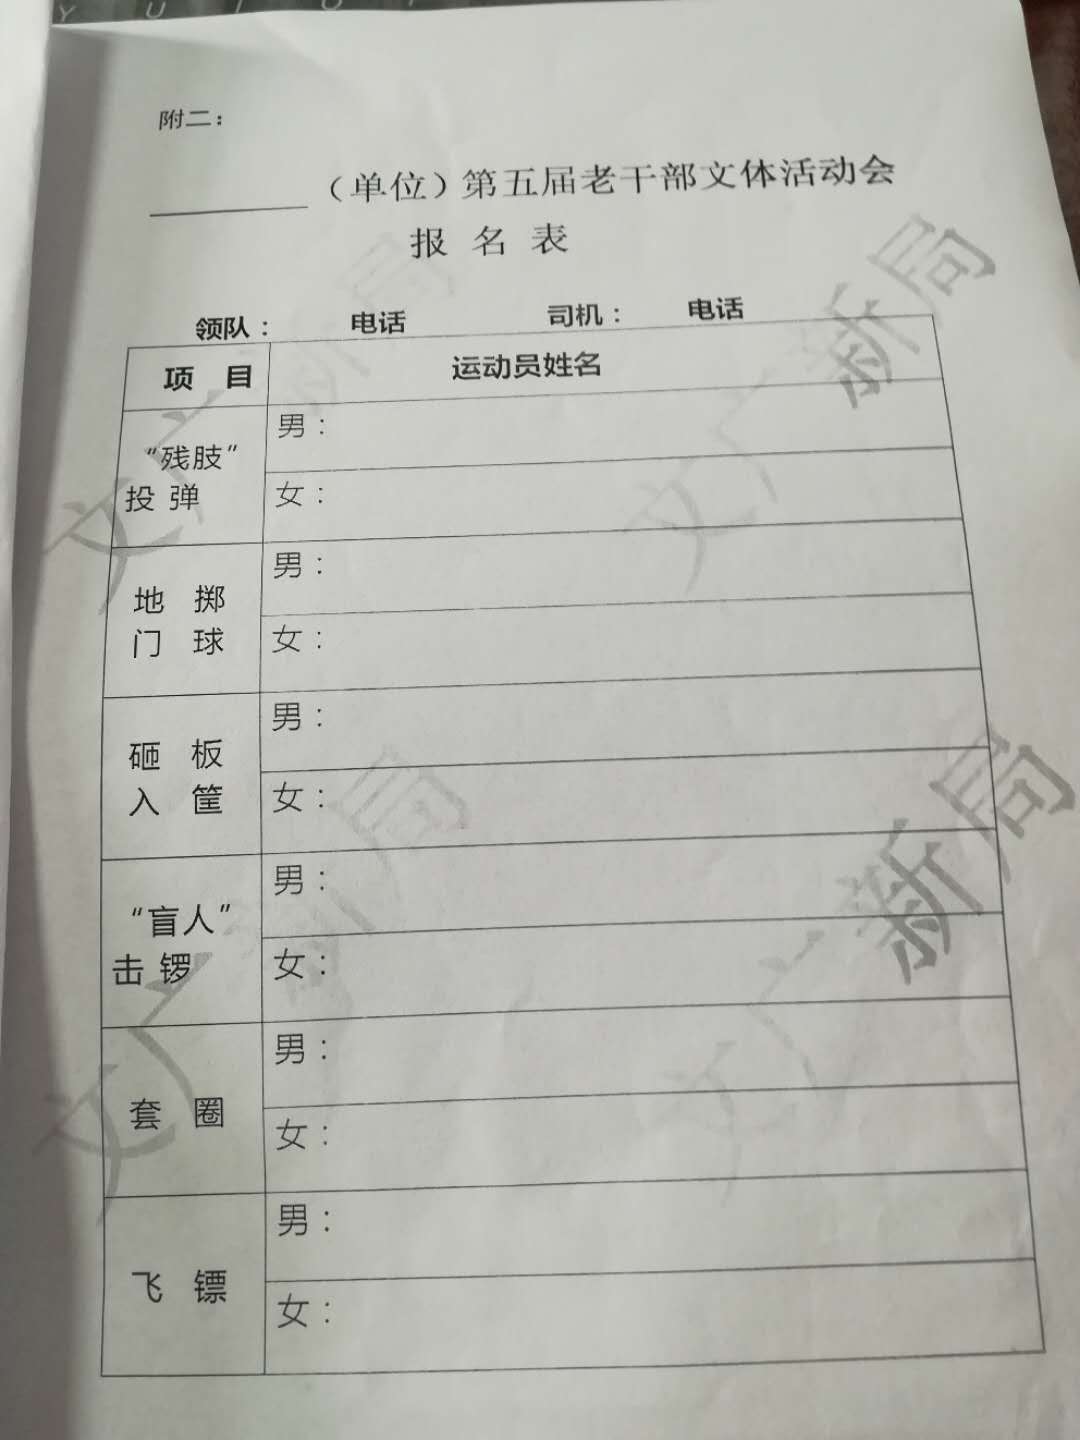 Y U I O
附二：
（单位）第五届老干部文体活动会
报 名 表
领队： 电话 司机： 电话
项 目 运动员姓名
“残肢”
投 弹
男：
女：
地 掷
门 球
男：
女：
砸 板
入 筐
男：
女：
“盲人”
击 锣
男：
女：
套 圈
男：
女：
飞 镖
男：
女：
文广新局
文广新局
文广新局
文广新局